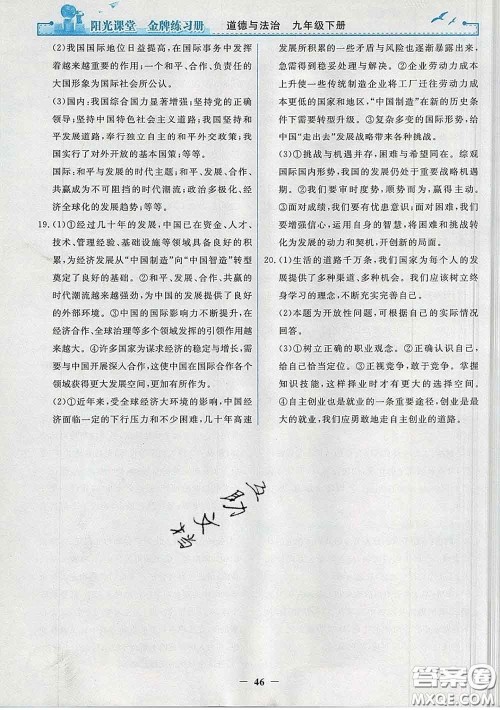 阳光课堂 金牌练习册 道德与法治 九年级下册
(2)我国国际地位日益提高，在国际事务中发挥
着越来越重要的作用；一个和平、合作、负责任的
大国形象为国际社会所公认。
(3)国内：我国综合国力显著增强；坚持党的正确
领导；坚持中国特色社会主义道路；我国坚持和
平发展道路，奉行独立自主的和平外交政策；我
国实行了对外开放的基本国策；等等。
国际：和平与发展的时代主题；和平、发展、合作、
共赢成为不可阻挡的时代潮流；政治多极化、经济
全球化的发展趋势；等等。
19. (1)①经过几十年的发展，中国已在资金、人才、
技术、管理经验、基础设施等领域具备良好的积
累，为经济发展从“中国制造”向“中国智造”转型
奠定了良好的基础。②和平、发展、合作、共赢的
时代潮流越来越强劲，为中国的发展提供了良好
的外部环境。③中国的国际影响力不断提升，在
经济合作、全球治理等多个领域发挥的引领作用越
来越大。④许多国家为谋求经济的稳定与增长，需
要与中国开展深入合作，这使中国在国际合作各个
领域都获得更大发展空间，更加有所作为。
(2)①近年来，受全球经济大环境的影响，中国经
济面临一定的下行压力和不少困难，几十年高速
发展所积累的一些矛盾与风险也逐渐暴露出来，
急需得到稳妥处理与解决。②企业劳动力成本
上升使一些传统制造企业将工厂迁往劳动力成
本更低的国家和地区，“中国制造”在新的历史条件
下需要转型升级。③复杂多变的国际形势，给
中国“走出去”发展战略带来各种挑战。
(3)①挑战与机遇并存，困难与希望同在。综观
国际国内形势，我国的发展仍处于重要战略机遇
期。②我们要审时度势，顺势而为，赢得主动。
③面对成绩，我们要有忧患意识；面对困难，我们
要坚定信心，运用自身的智慧，将困难和挑战转
化为发展的动力和契机，开创新局面。
20. (1)生活的道路千万条，我们国家为每个人的发
展提供了多种渠道、多种机会。我们应该树立终
身学习的理念，不断充实完善自己。
(2)本题为开放性问题，可根据自己的实际情况
回答。
(3)①树立正确的职业观念。②正确认识自己，
给自己恰当定位。③正视竞争，敢于竞争。掌握
知识技能，这样择业时才有更大的选择空间。
④自主创业也是就业的一条重要途径，创业是最
大的就业，我们应勇敢地走自主创业的道路。
互助文档
46
答案圈
MXQE.COM